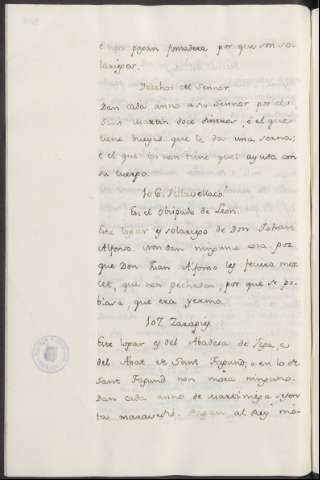 pagan fonsadera por que son so
lariegos.
Derechos del Sennor
Dan cada anno a su Sennor por el
San Martin doce dineros, e el que
tiene bueyes que le da una serna;
e el que no los tiene quel ayuda con
su cuerpo.
106.
En el Obispado de Leon.
Este logar es solariego de Don Johan
Alfonso. Non dan ninguna cosa por
que Don Juan Alfonso les ficiera mer
cet, que non pechasen, por que se po
blase, que era yerma.
107.
Este logar es del Abadesa de e
del Abat de Sant Fagund, e en lo de
Sant Fagund non mora ninguno.
Dan cada anno de Martiniega sesen
ta maravedis. Pagan al Rey mo